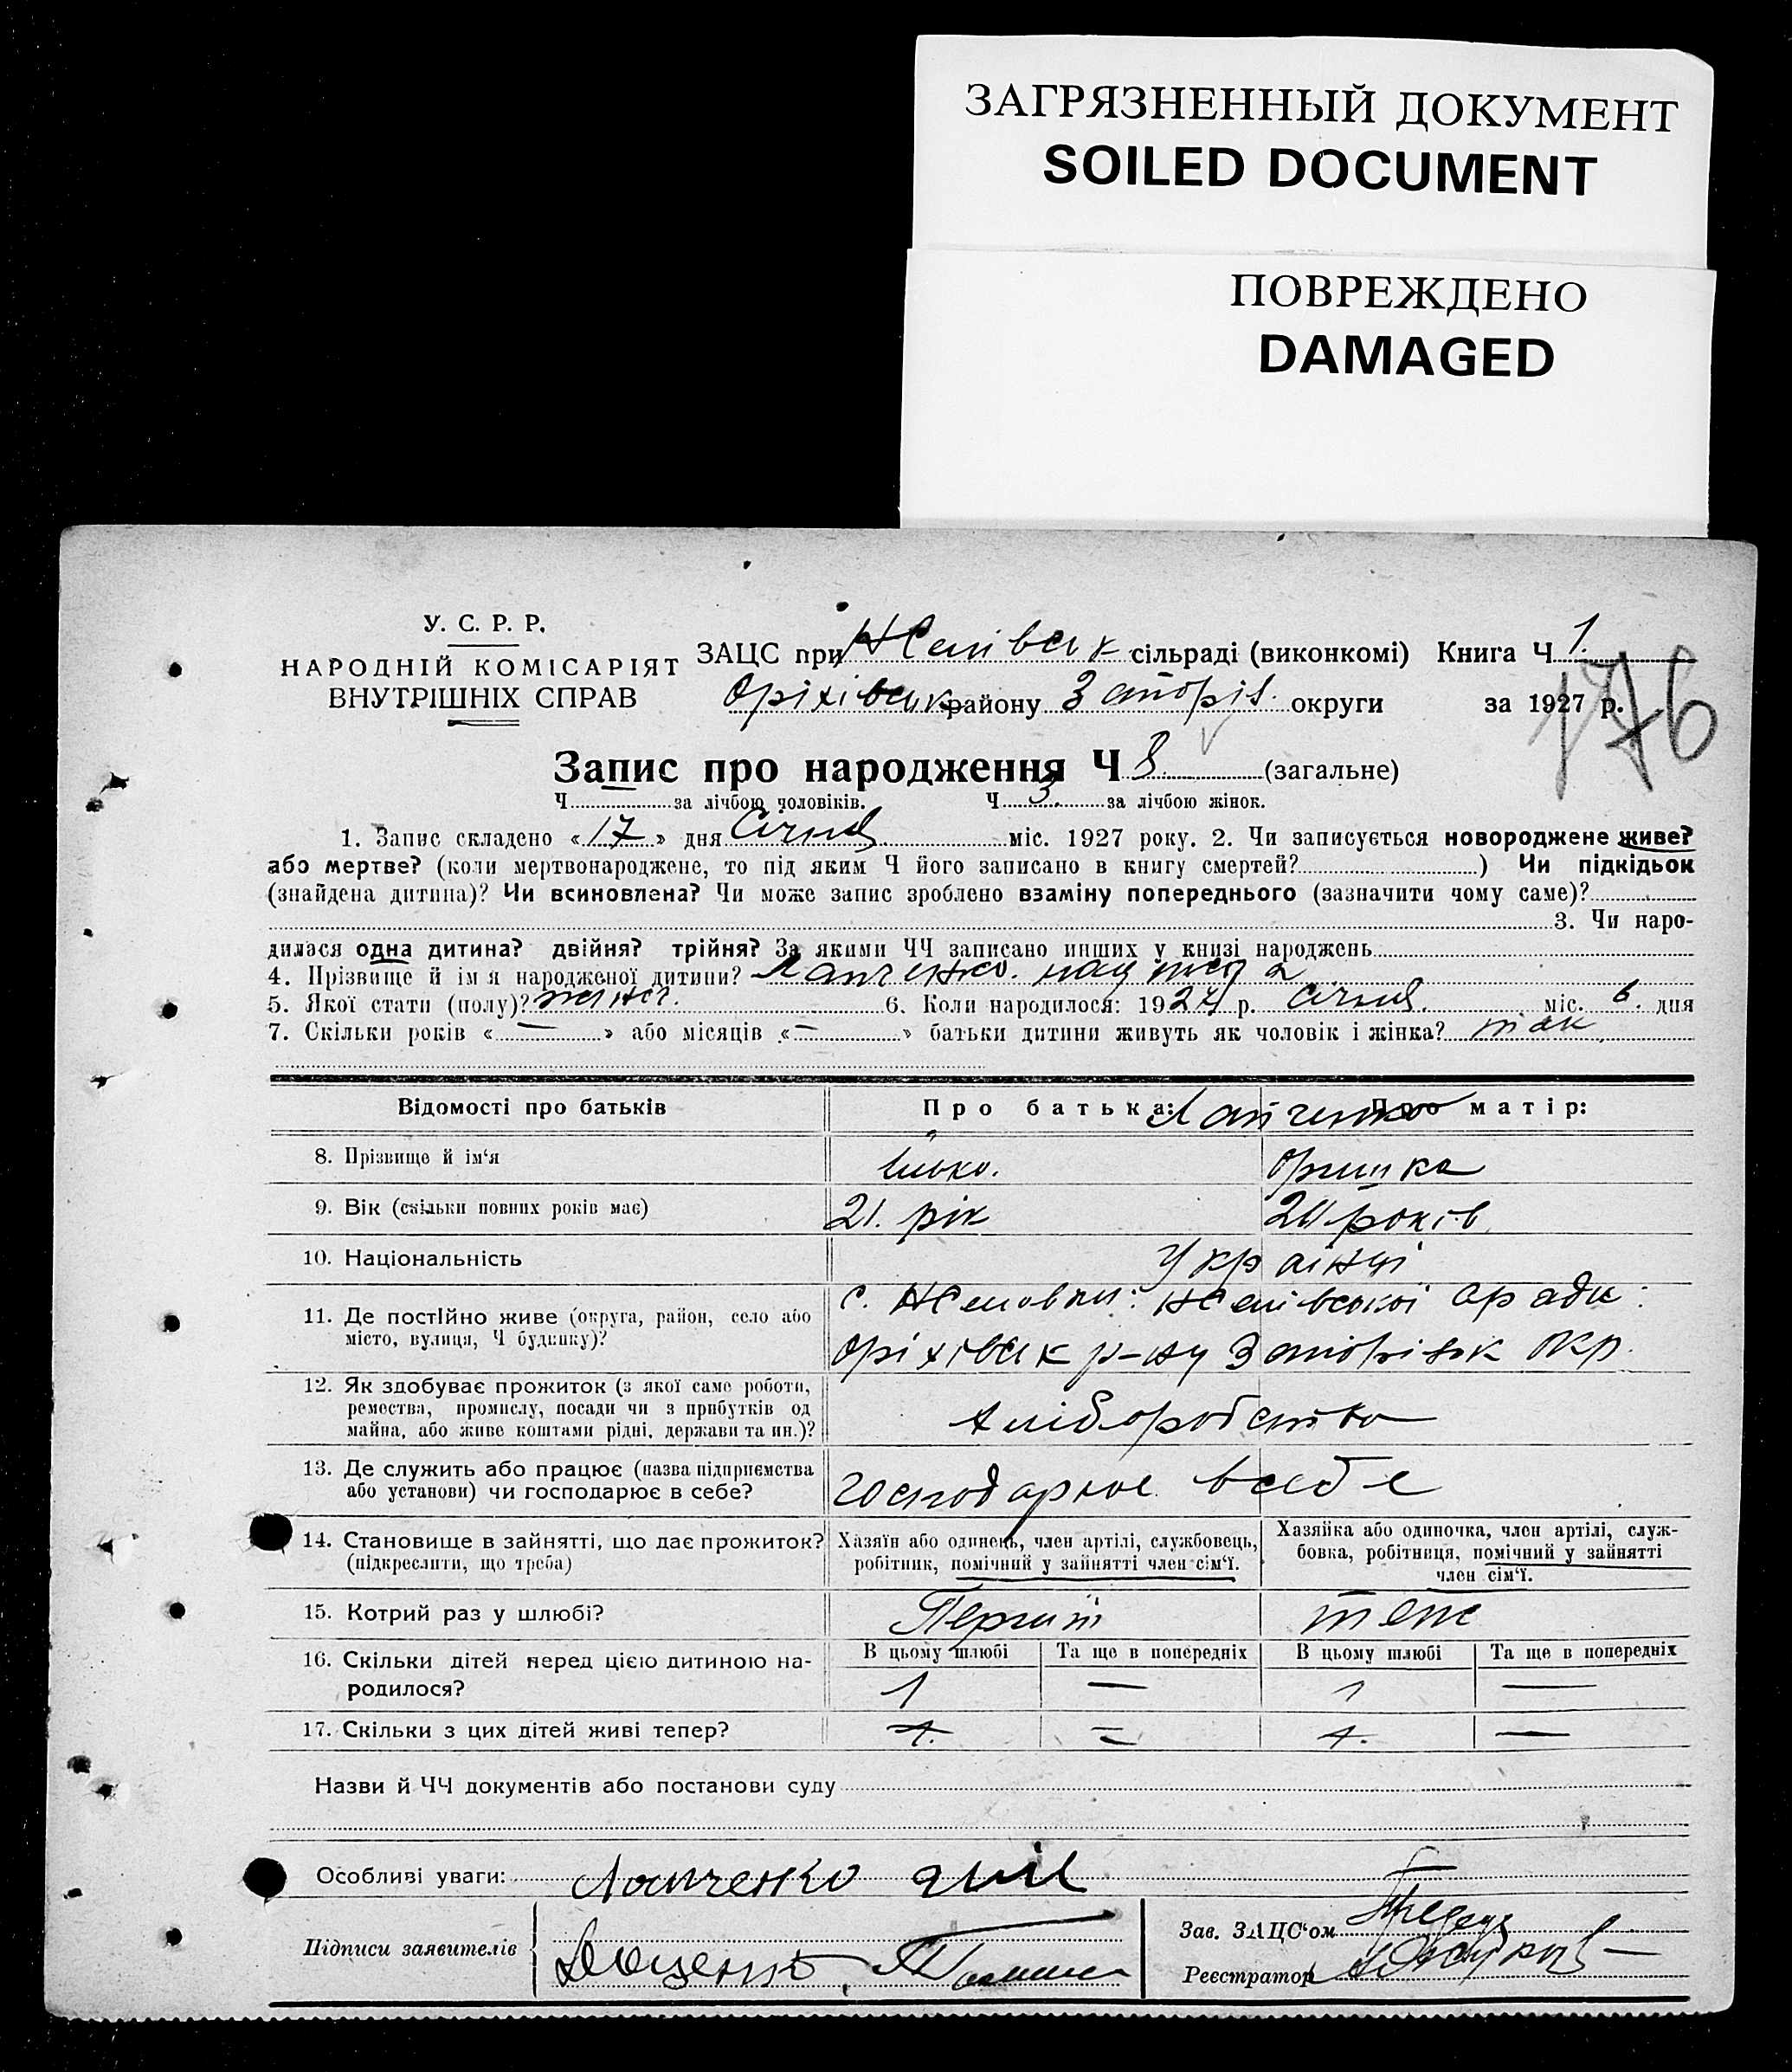 ЗАГРЯЗНЕННЫЙ ДОКУМЕНТ
SOILED DOCUMENT
ПОВРЕЖДЕНО
DAMAGED
У. С. Р. Р.
НАРОДНІЙ КОМІСАРІЯТ
ВНУТРІШНІХ СПРАВ
ЗАЦС при сільраді (виконкомі) Книга Ч 1.
Оріхівськ району Запоріз. округи за 1927 р.
176
Запис про народження Ч 8 (загальне)
Ч за лічбою чоловіків. Ч 3. за лічбою жінок.
1. Запис складено «17» дня Січня міс. 1927 року. 2. Чи записується новороджене живе?
або мертве? (коли мертвонароджене, то під яким Ч його записано в книгу смертей? ) Чи підкідьок
(знайдена дитина)? Чи всиновлена? Чи може запис зроблено взаміну попереднього (зазначити чому саме)?
3. Чи наро-
дилася одна дитина? двійня? трійня? За якими ЧЧ записано инших у книзі народжень
4. Прізвище й ім'я народженої дитини? Лапченко.
5. Якої стати (полу)? жіноч. 6. Коли народилося: 1927 р. Січня. міс. 6. дня
7. Скільки років «—» або місяців «—» батьки дитини живуть як чоловік і жінка? так
Відомості про батьків Про батька: Про матір:
Лапченко
8. Прізвище й ім'я Оришка
9. Вік (скільки повних років має) 21. рік 20 років
10. Національність Українці
11. Де постійно живе (округа, район, село або с.
місто, вулиця, Ч будинку)? Оріхівськ р-ну Запорізьк окр.
12. Як здобуває прожиток (з якої саме роботи,
ремества, промислу, посади чи з прибутків од хліборобство
майна, або живе коштами рідні, держави та ин.)?
13. Де служить або працює (назва підприємства
або установи) чи господарює в себе? господарює в себе
14. Становище в зайнятті, що дає прожиток? Хазяїн або одинець, член артілі, службовець, Хазяйка або одиночка, член артілі, служ-
(підкреслити, що треба) робітник, помічний у зайнятті член сім'ї. бовка, робітниця, помічний у зайнятті
член сім'ї.
15. Котрий раз у шлюбі? Перший теж
16. Скільки дітей перед цією дитиною на- В цьому шлюбі Та ще в попередніх В цьому шлюбі Та ще в попередніх
родилося? 1 — 1 —
17. Скільки з цих дітей живі тепер? 1. — 1. —
Назви й ЧЧ документів або постанови суду
Особливі уваги: Лапченко
Підписи заявителів Доценко,
Зав. ЗАЦС'ом
Реєстратор